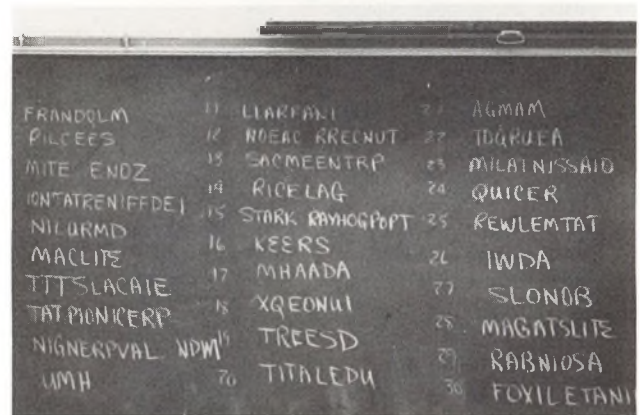 FRANDOLM
PILCEES
MITE ENDZ
IONTATRENIFFDEI
NILURMD
MACLITE
TTTSLACAIE
TATPIONICERP
NIGNERPVAL NDM
UMH
11 LLARFANI
12 NOEAC RRECNUT
13 SACMEENTRP
14 RICELAG
15 STARK RAYHOGPOPT
16 KEERS
17 MHAADA
18 XQEONUI
19 TREESD
20 TITALEDU
21 AGMAM
22 TDQRUEA
23 MILATNISSAIO
24 QUICER
25 REWLEMTAT
26 IWDA
27 SLONOB
28 MAGATSLITE
29 RABNIOSA
30 FOXILETANI